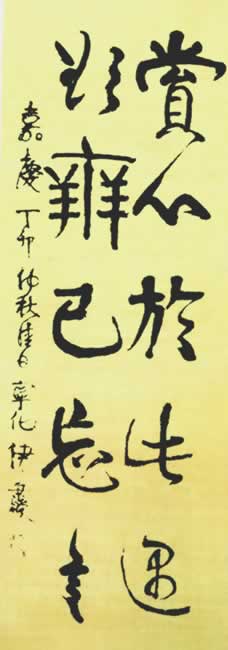 賞心於此遇
欲辨已忘言
嘉慶丁卯仲秋佳日寧化伊秉綬